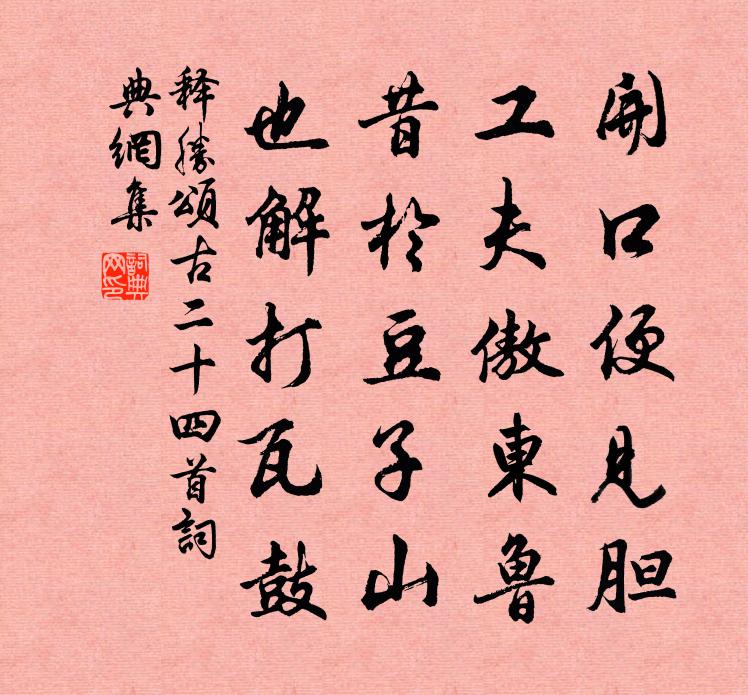 開口便見胆
工夫傲東魯
昔於豆子山
也解打瓦鼓
释勝頌古二十四首詞
典網集
詞典網印